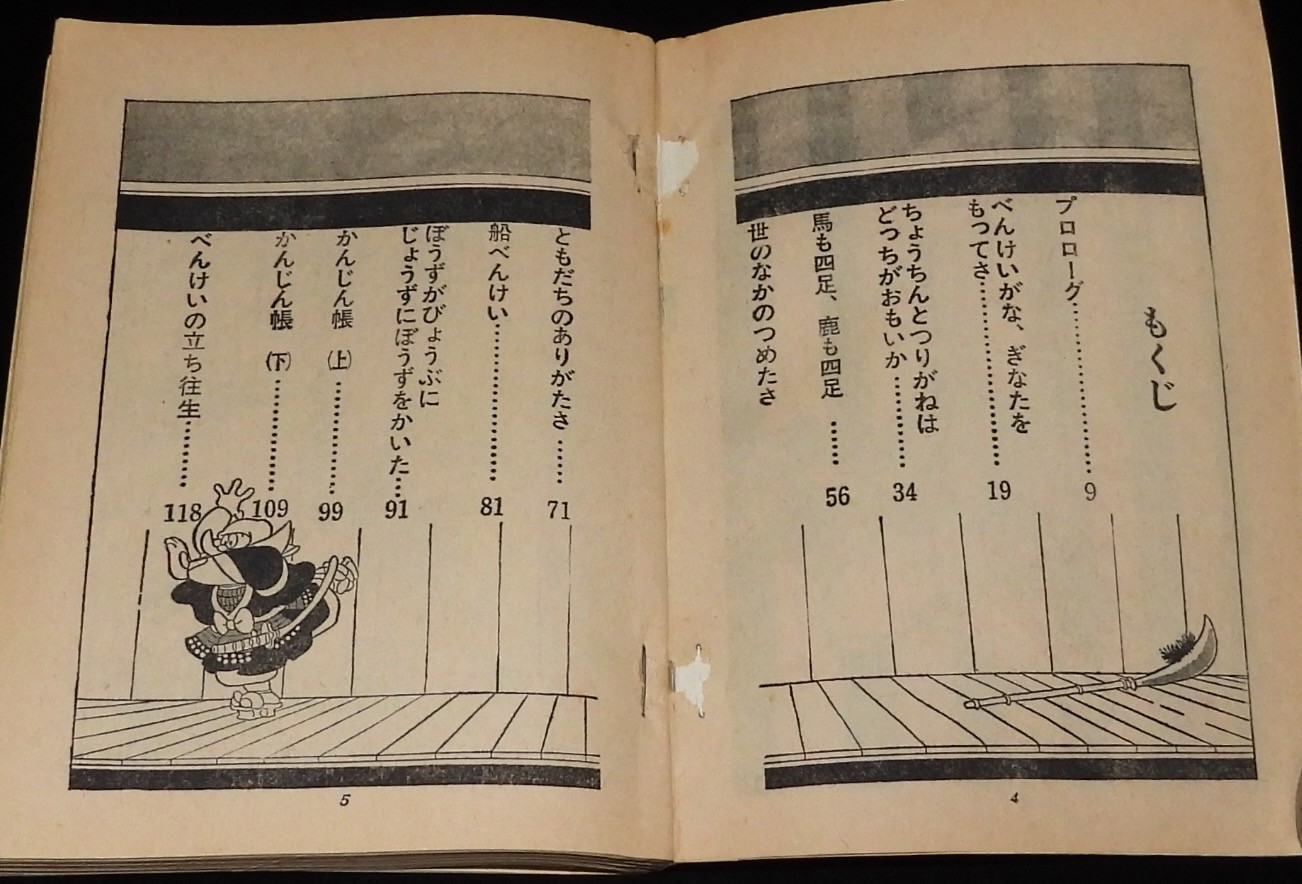 もくじ
プロローグ…………………9
べんけいがな、ぎなたを
もってさ…………………19
ちょうちんとつりがねは
どっちがおもいか…………34
馬も四足、鹿も四足……56
世のなかのつめたさ
4
ともだちのありがたさ……71
船べんけい…………………81
ぼうずがびょうぶに
じょうずにぼうずをかいた…91
かんじん帳（上）…………99
かんじん帳（下）…………109
べんけいの立ち往生………118
5